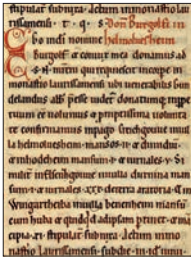 stipulat subnixa. Actum in monasterio lau
rissamensi. t. q. s. Don Burgolfi in
Ego in dei nomine helmoluesheim
Burgolf & conux mea donamus ad
s. N. mrēm qui requiescit in corpe in
monastio laurissamensi ubi uenerabilis Gun
delandus abb preesse uidet donatumq, in ppe
tuum ee uolumus & pmptissima uolunta
te confirmamus in pago
la helmoluesheim. mansos. II. & dimidiū
& in hodesheim mansum. I. & iurnales. V. Si
milit in flisengouue in uilla durnina man
sum. I. & iurnales. XXX. de terra aratoria. &
Wingartheiba in uilla benenheim mansū
cum huba & quidqd adipsam ptinet. & ma
cipia. XI. stipulat subnixa. Actum in mona
stio laurissamensi. sub die